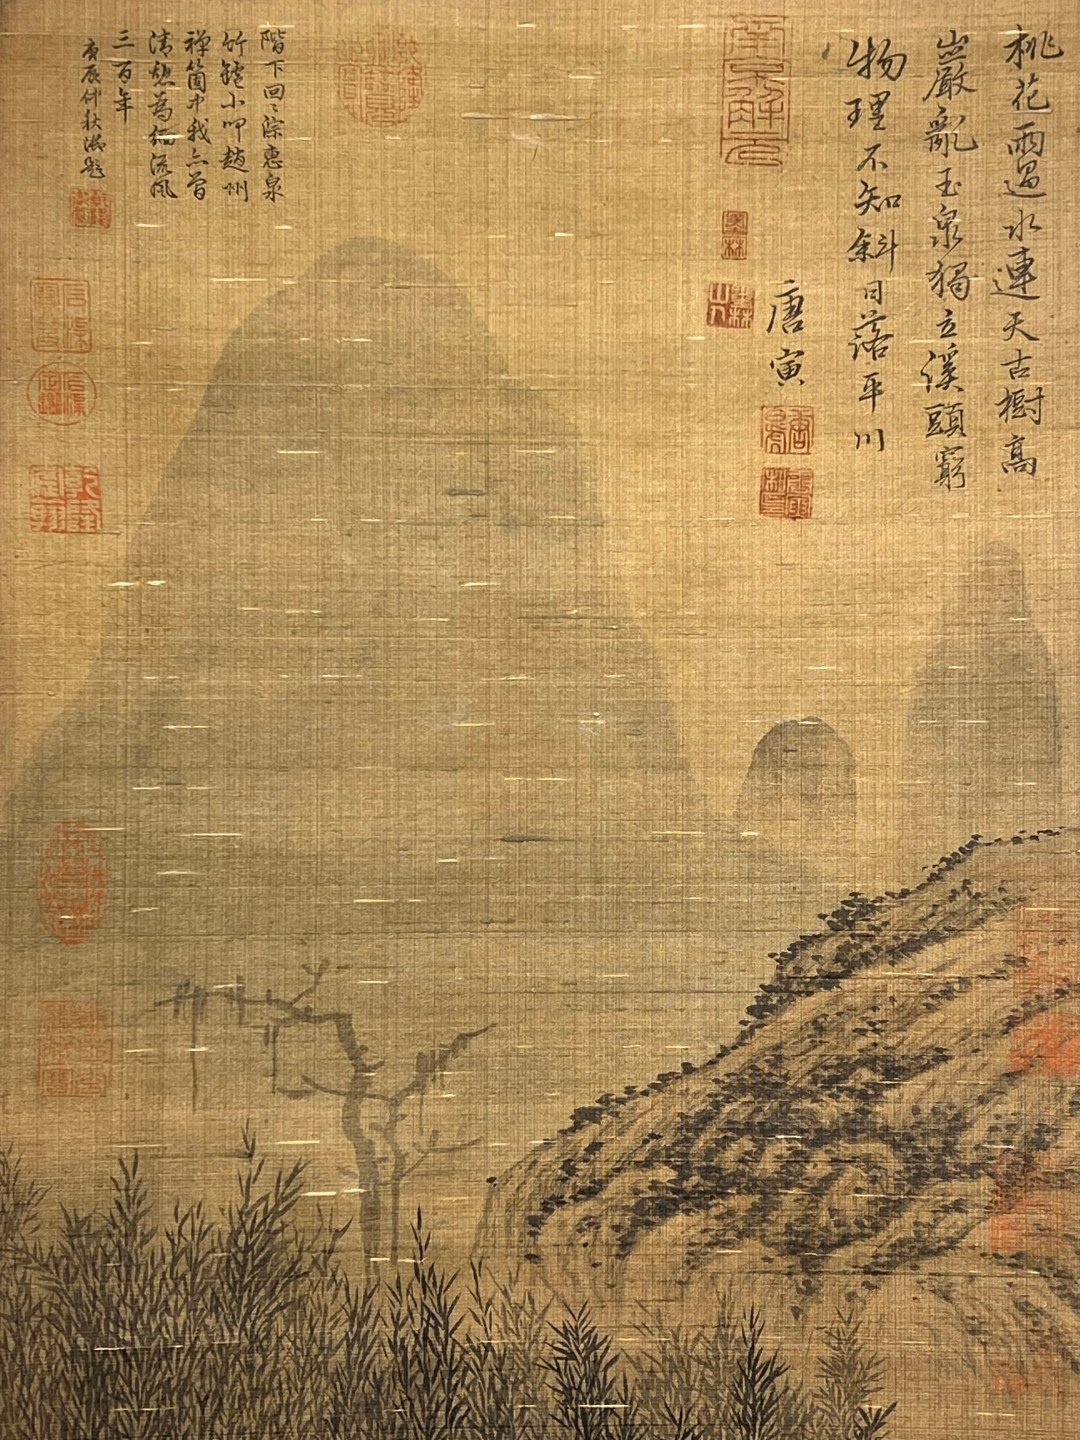 桃花雨過水連天古樹高
巖亂玉泉獨立溪頭窮
物理不知斜日落平川
唐寅
南京解元
墨林
階下回〻淙惠泉
竹罏小叩趙州
禪箇中我亦曾
清憩為緬流風
三百年
庚辰仲秋御題